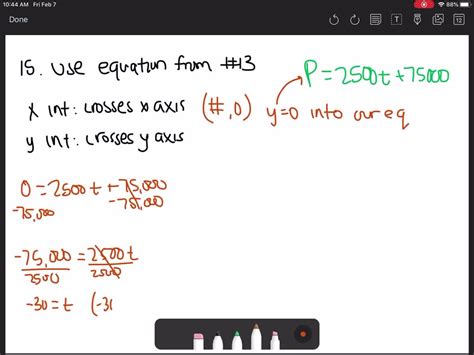 10:44 AM Fri Feb 7
88%
Done
15. Use equation from #13
P=2500t+75000
x int: crosses x axis (#,0) y=0 into our eq
y int: crosses y axis
0=2500t+75,000
-75,000 -75,000
-75,000 = 2500t
2500 2500
-30=t (-30